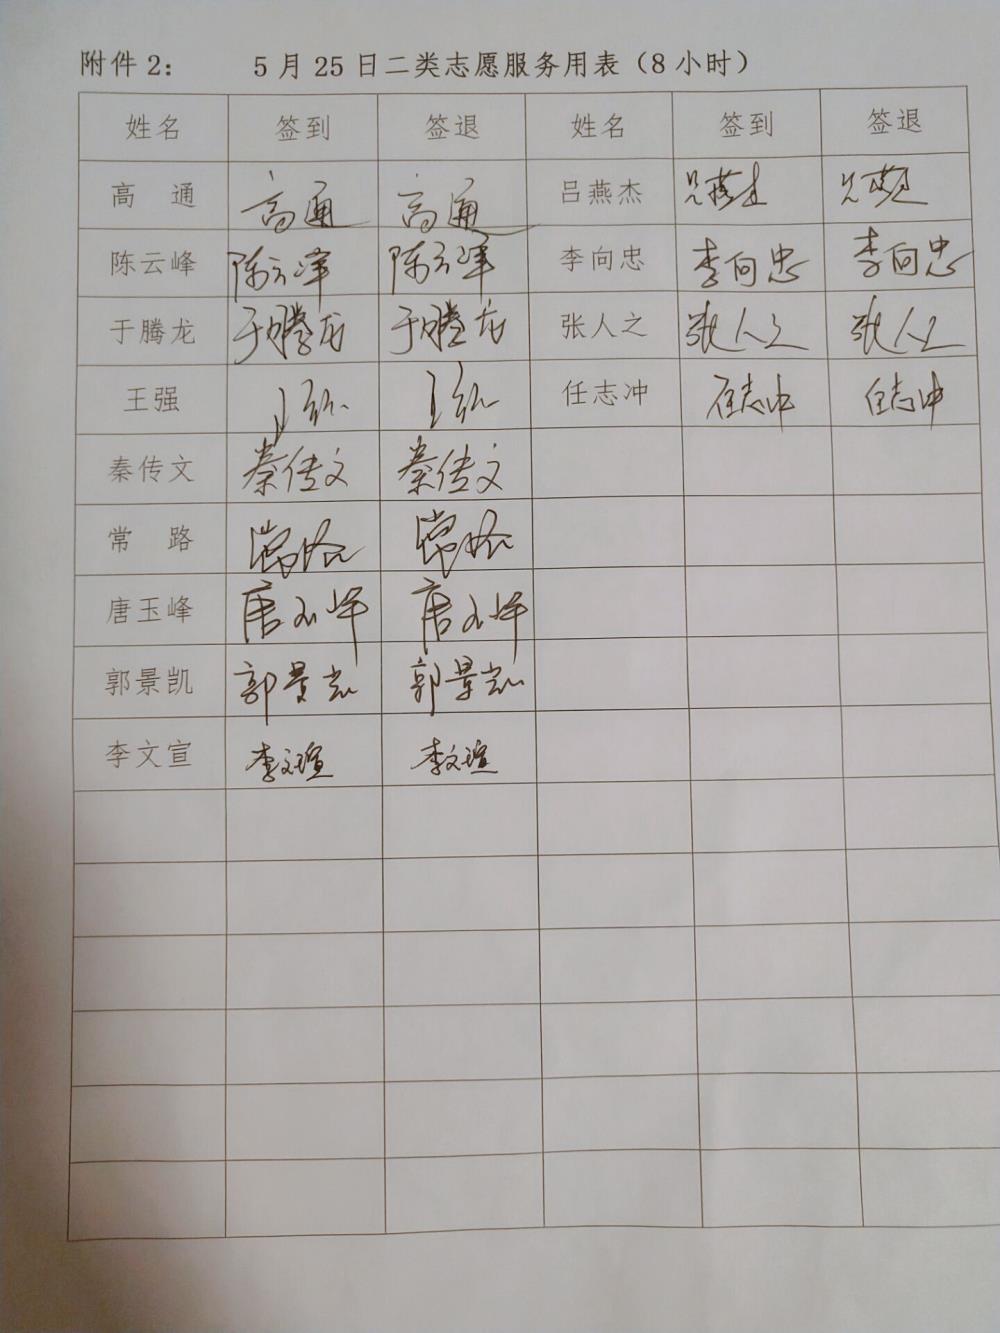 附件2： 5月25日二类志愿服务用表（8小时）
姓名 签到 签退 姓名 签到 签退
高 通 高通 高通 吕燕杰
陈云峰 陈云峰 陈云峰 李向忠 李向忠 李向忠
于腾龙 于腾龙 于腾龙 张人之 张人之 张人之
王强 任志冲 任志冲 任志冲
秦传文 秦传文 秦传文
常 路 常路 常路
唐玉峰 唐玉峰 唐玉峰
郭景凯 郭景凯 郭景凯
李文宣 李文瑄 李文瑄